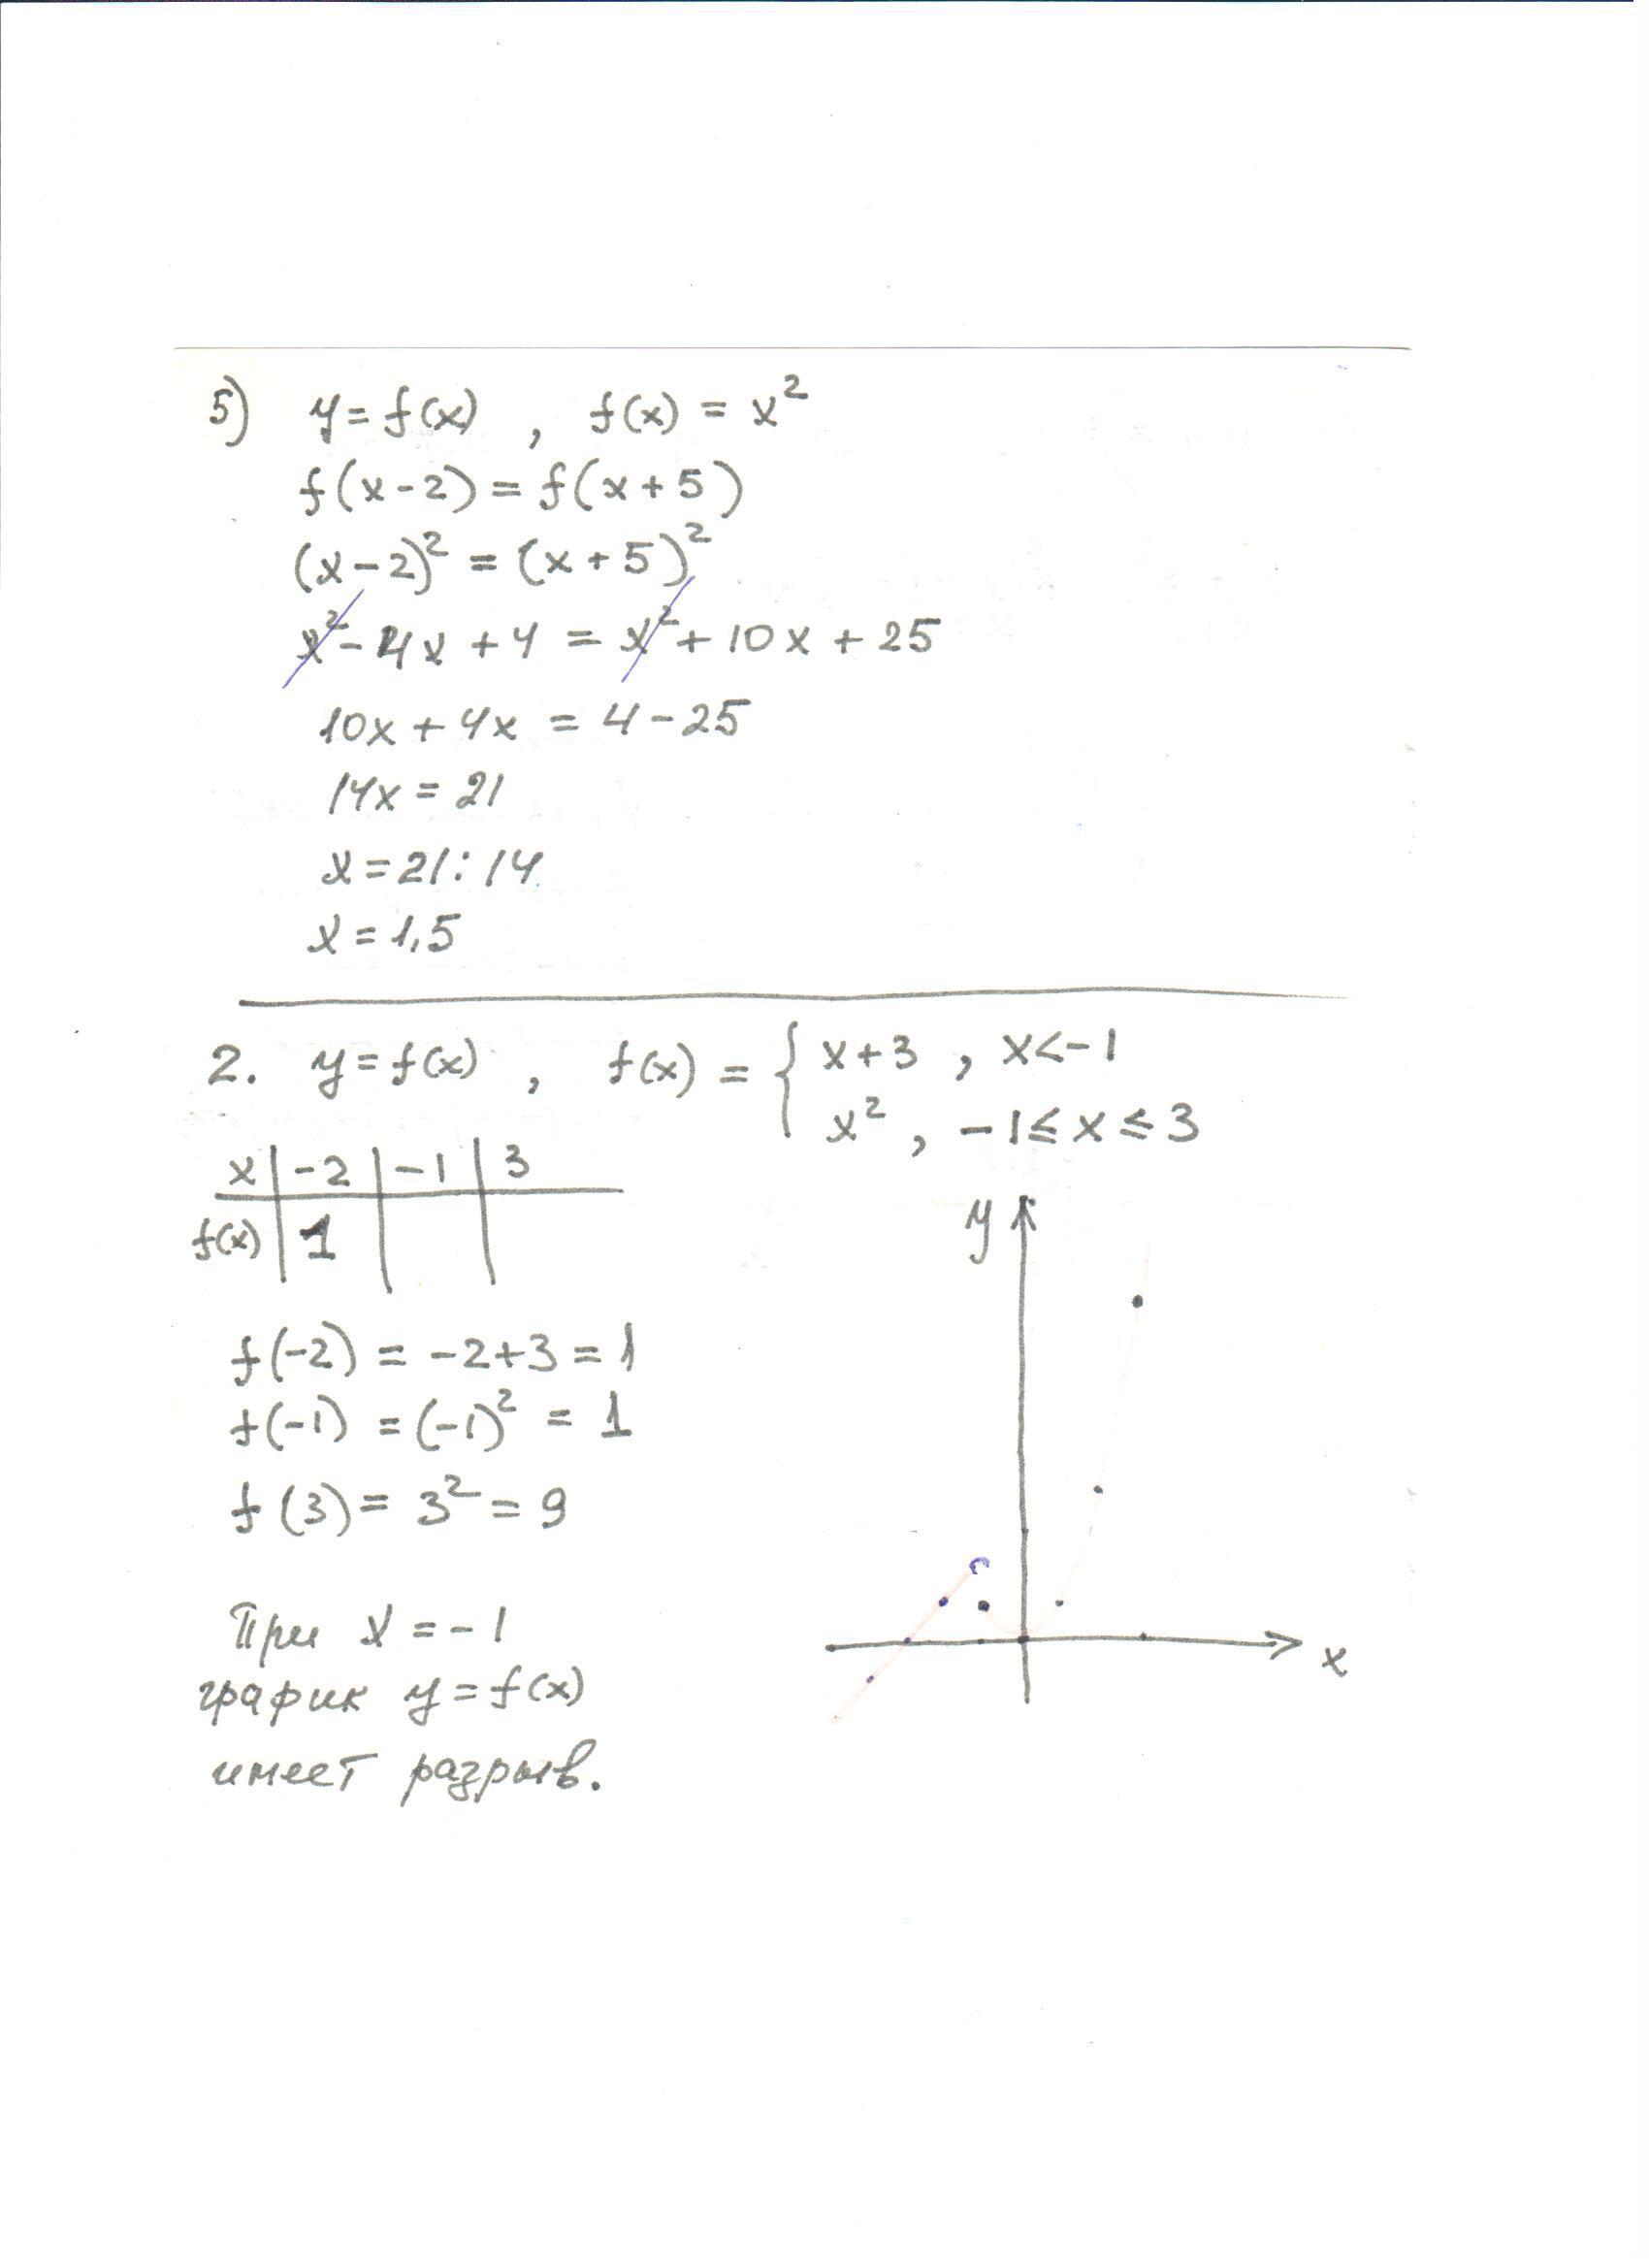 5) y = f(x) , f(x) = x²
f(x-2) = f(x+5)
(x-2)² = (x+5)²
x² - 4x + 4 = x² + 10x + 25
10x + 4x = 4 - 25
14x = 21
x = 21 : 14
x = 1,5
2. y = f(x) , f(x) = { x+3 , x < -1
x² , -1 ≤ x ≤ 3
x | -2 | -1 | 3
f(x) | 1
y
f(-2) = -2+3 = 1
f(-1) = (-1)² = 1
f(3) = 3² = 9
При x = -1
x
график y = f(x)
имеет разрыв.